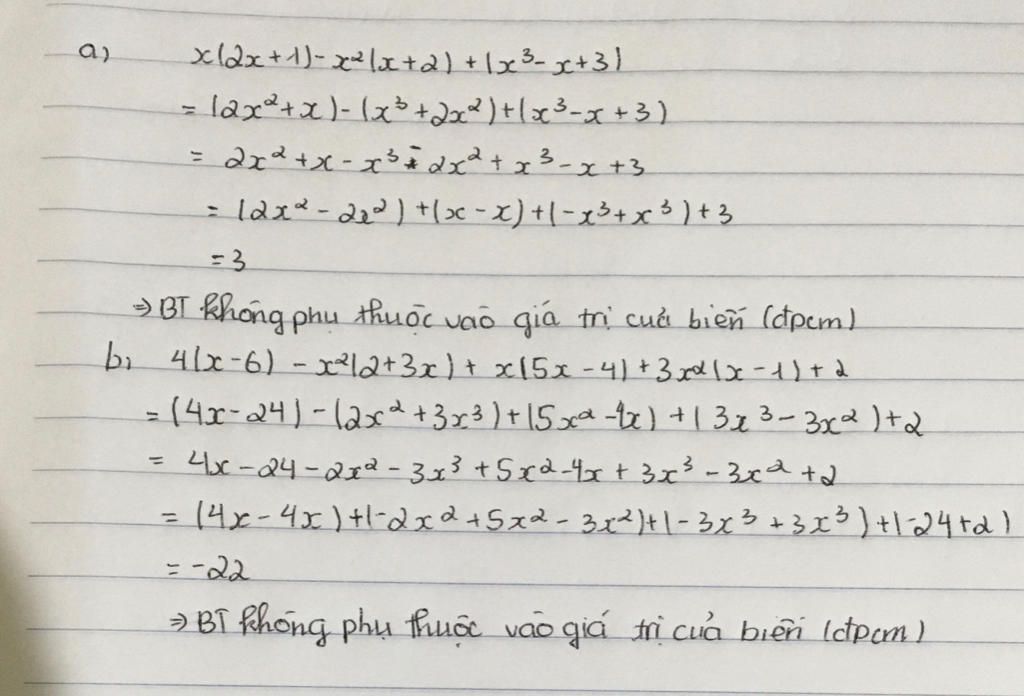 a) x(2x+1)-x²(x+2)+(x³-x+3)
= (2x²+x)-(x³+2x²)+(x³-x+3)
= 2x²+x-x³-2x²+x³-x+3
= (2x²-2x²)+(x-x)+(-x³+x³)+3
=3
⇒BT không phụ thuộc vào giá trị của biến (đpcm)
b, 4(x-6)-x²(2+3x)+x(5x-4)+3x²(x-1)+2
=(4x-24)-(2x²+3x³)+(5x²-4x)+(3x³-3x²)+2
= 4x-24-2x²-3x³+5x²-4x+3x³-3x²+2
= (4x-4x)+(-2x²+5x²-3x²)+(-3x³+3x³)+(-24+2)
=-22
⇒BT không phụ thuộc vào giá trị của biến (đpcm)